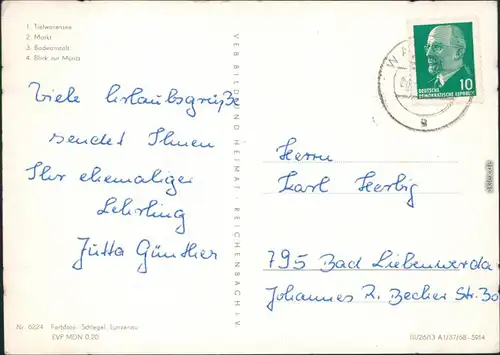 1. Tiefwarensee
2. Markt
3. Badeanstalt
4. Blick zur Müritz
Viele Urlaubsgrüße
sendet Ihnen
Ihr ehemaliger
Lehrling
Jutta Günther
Nr. 6224 Farbfoto: Schlegel, Lunzenau
EVP MDN 0,20
VEB BILD UND HEIMAT · REICHENBACH i. V.
WA
10
DEUTSCHE
DEMOKRATISCHE REPUBLIK
a
Herrn
Karl Herbig
795 Bad Liebenwerda
Johannes R. Becher Str. 30
III/26/13 A1/37/68 5914